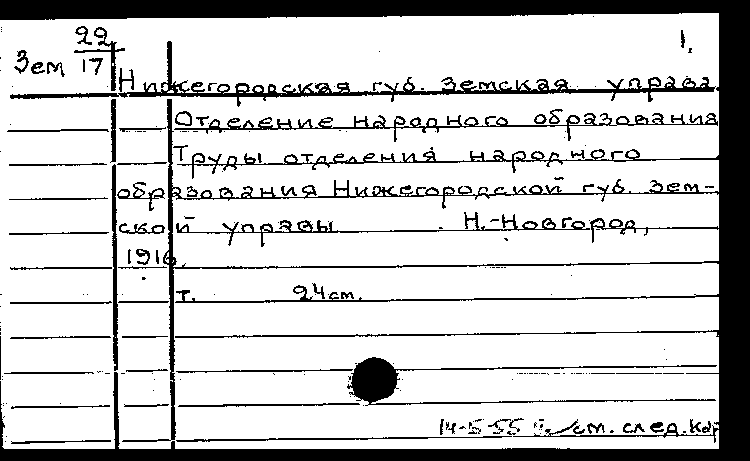 22 1.
Зем 17
Нижегородская губ. земская управа.
Отделение народного образования
Труды отделения народного
образования Нижегородской губ. зем-
ской управы Н.-Новгород,
1916.
т. 24 см.
14-5-55 см. след. кар